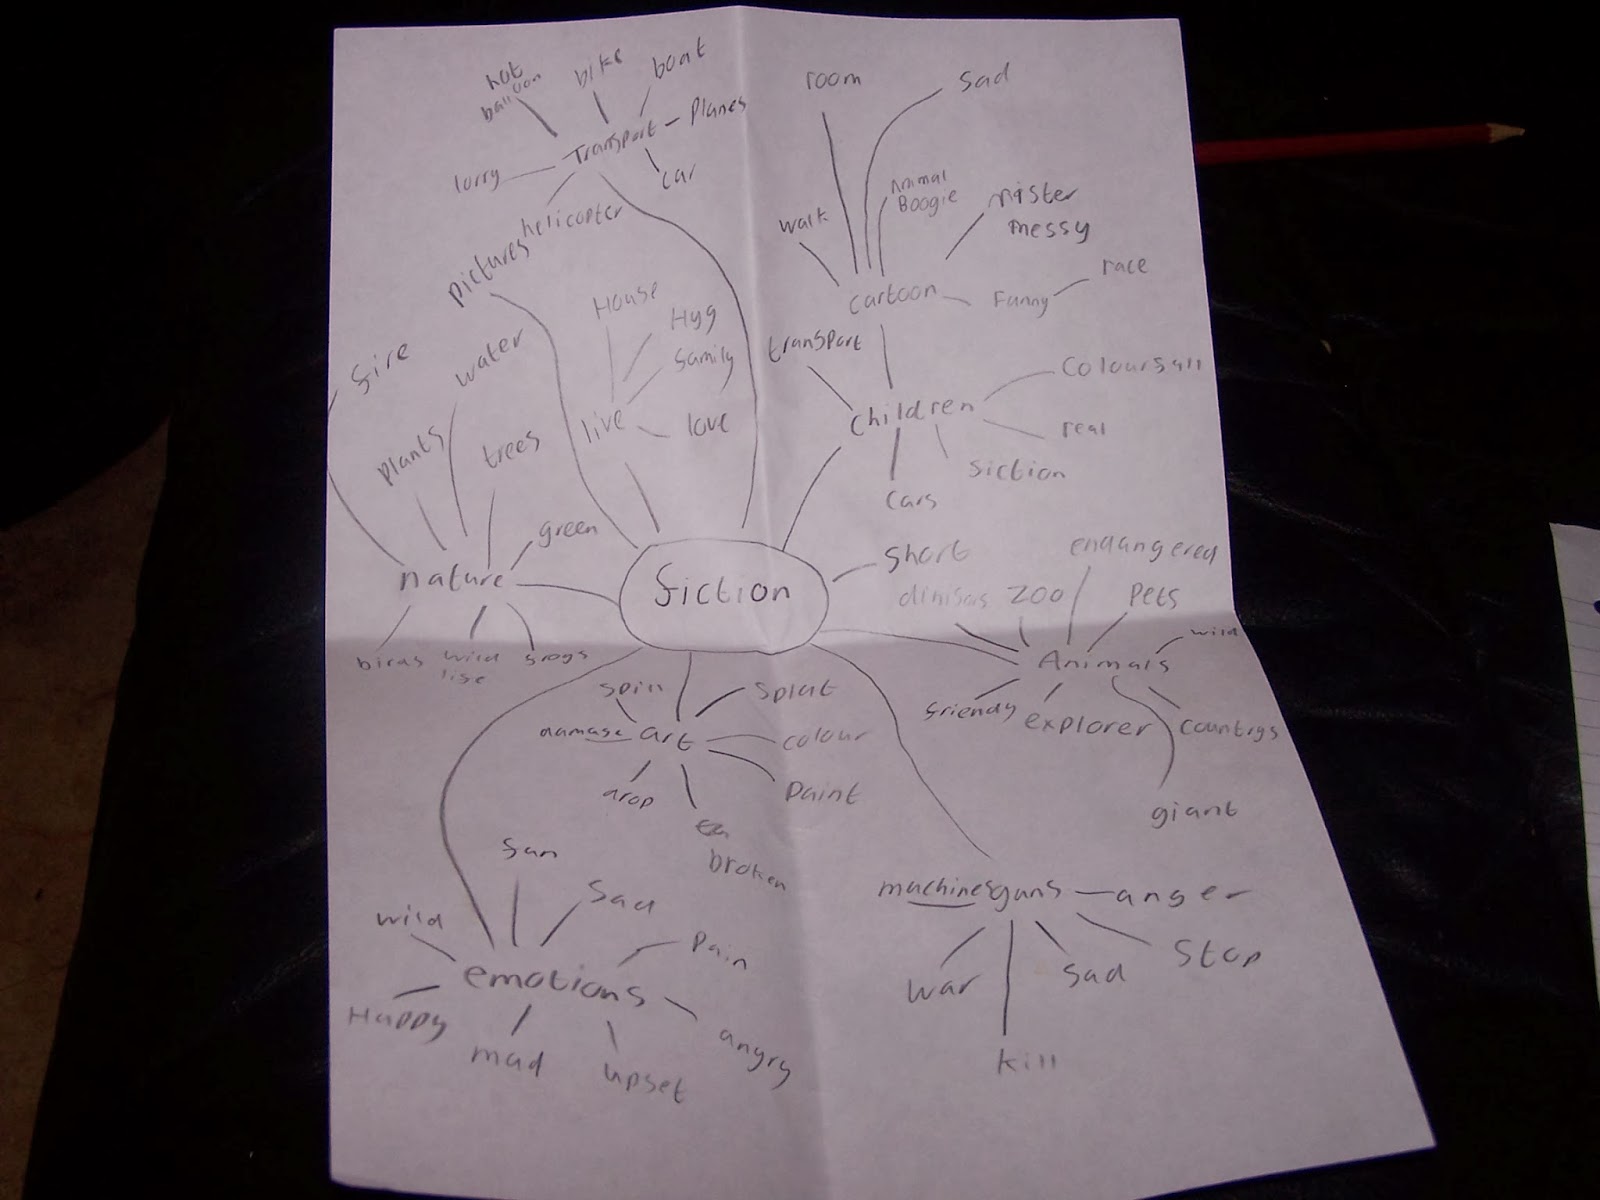 hot
balloon
bike
boat
Transport
Planes
lorry
car
helicopter
pictures
room
sad
Animal
Boogie
walk
mister
messy
cartoon
Funny
race
House
Hyg
family
live
love
fire
water
plants
trees
green
nature
birds
wild
life
frogs
transport
children
Coloursall
real
fiction
cars
fiction
short
endangered
ZOO
Pets
wild
Animals
friendy
explorer
countrys
giant
spin
splat
damage
art
colour
drop
Paint
broken
sun
Sad
wild
Pain
emotions
Happy
mad
upset
angry
machinesguns
anger
war
sad
Stop
kill